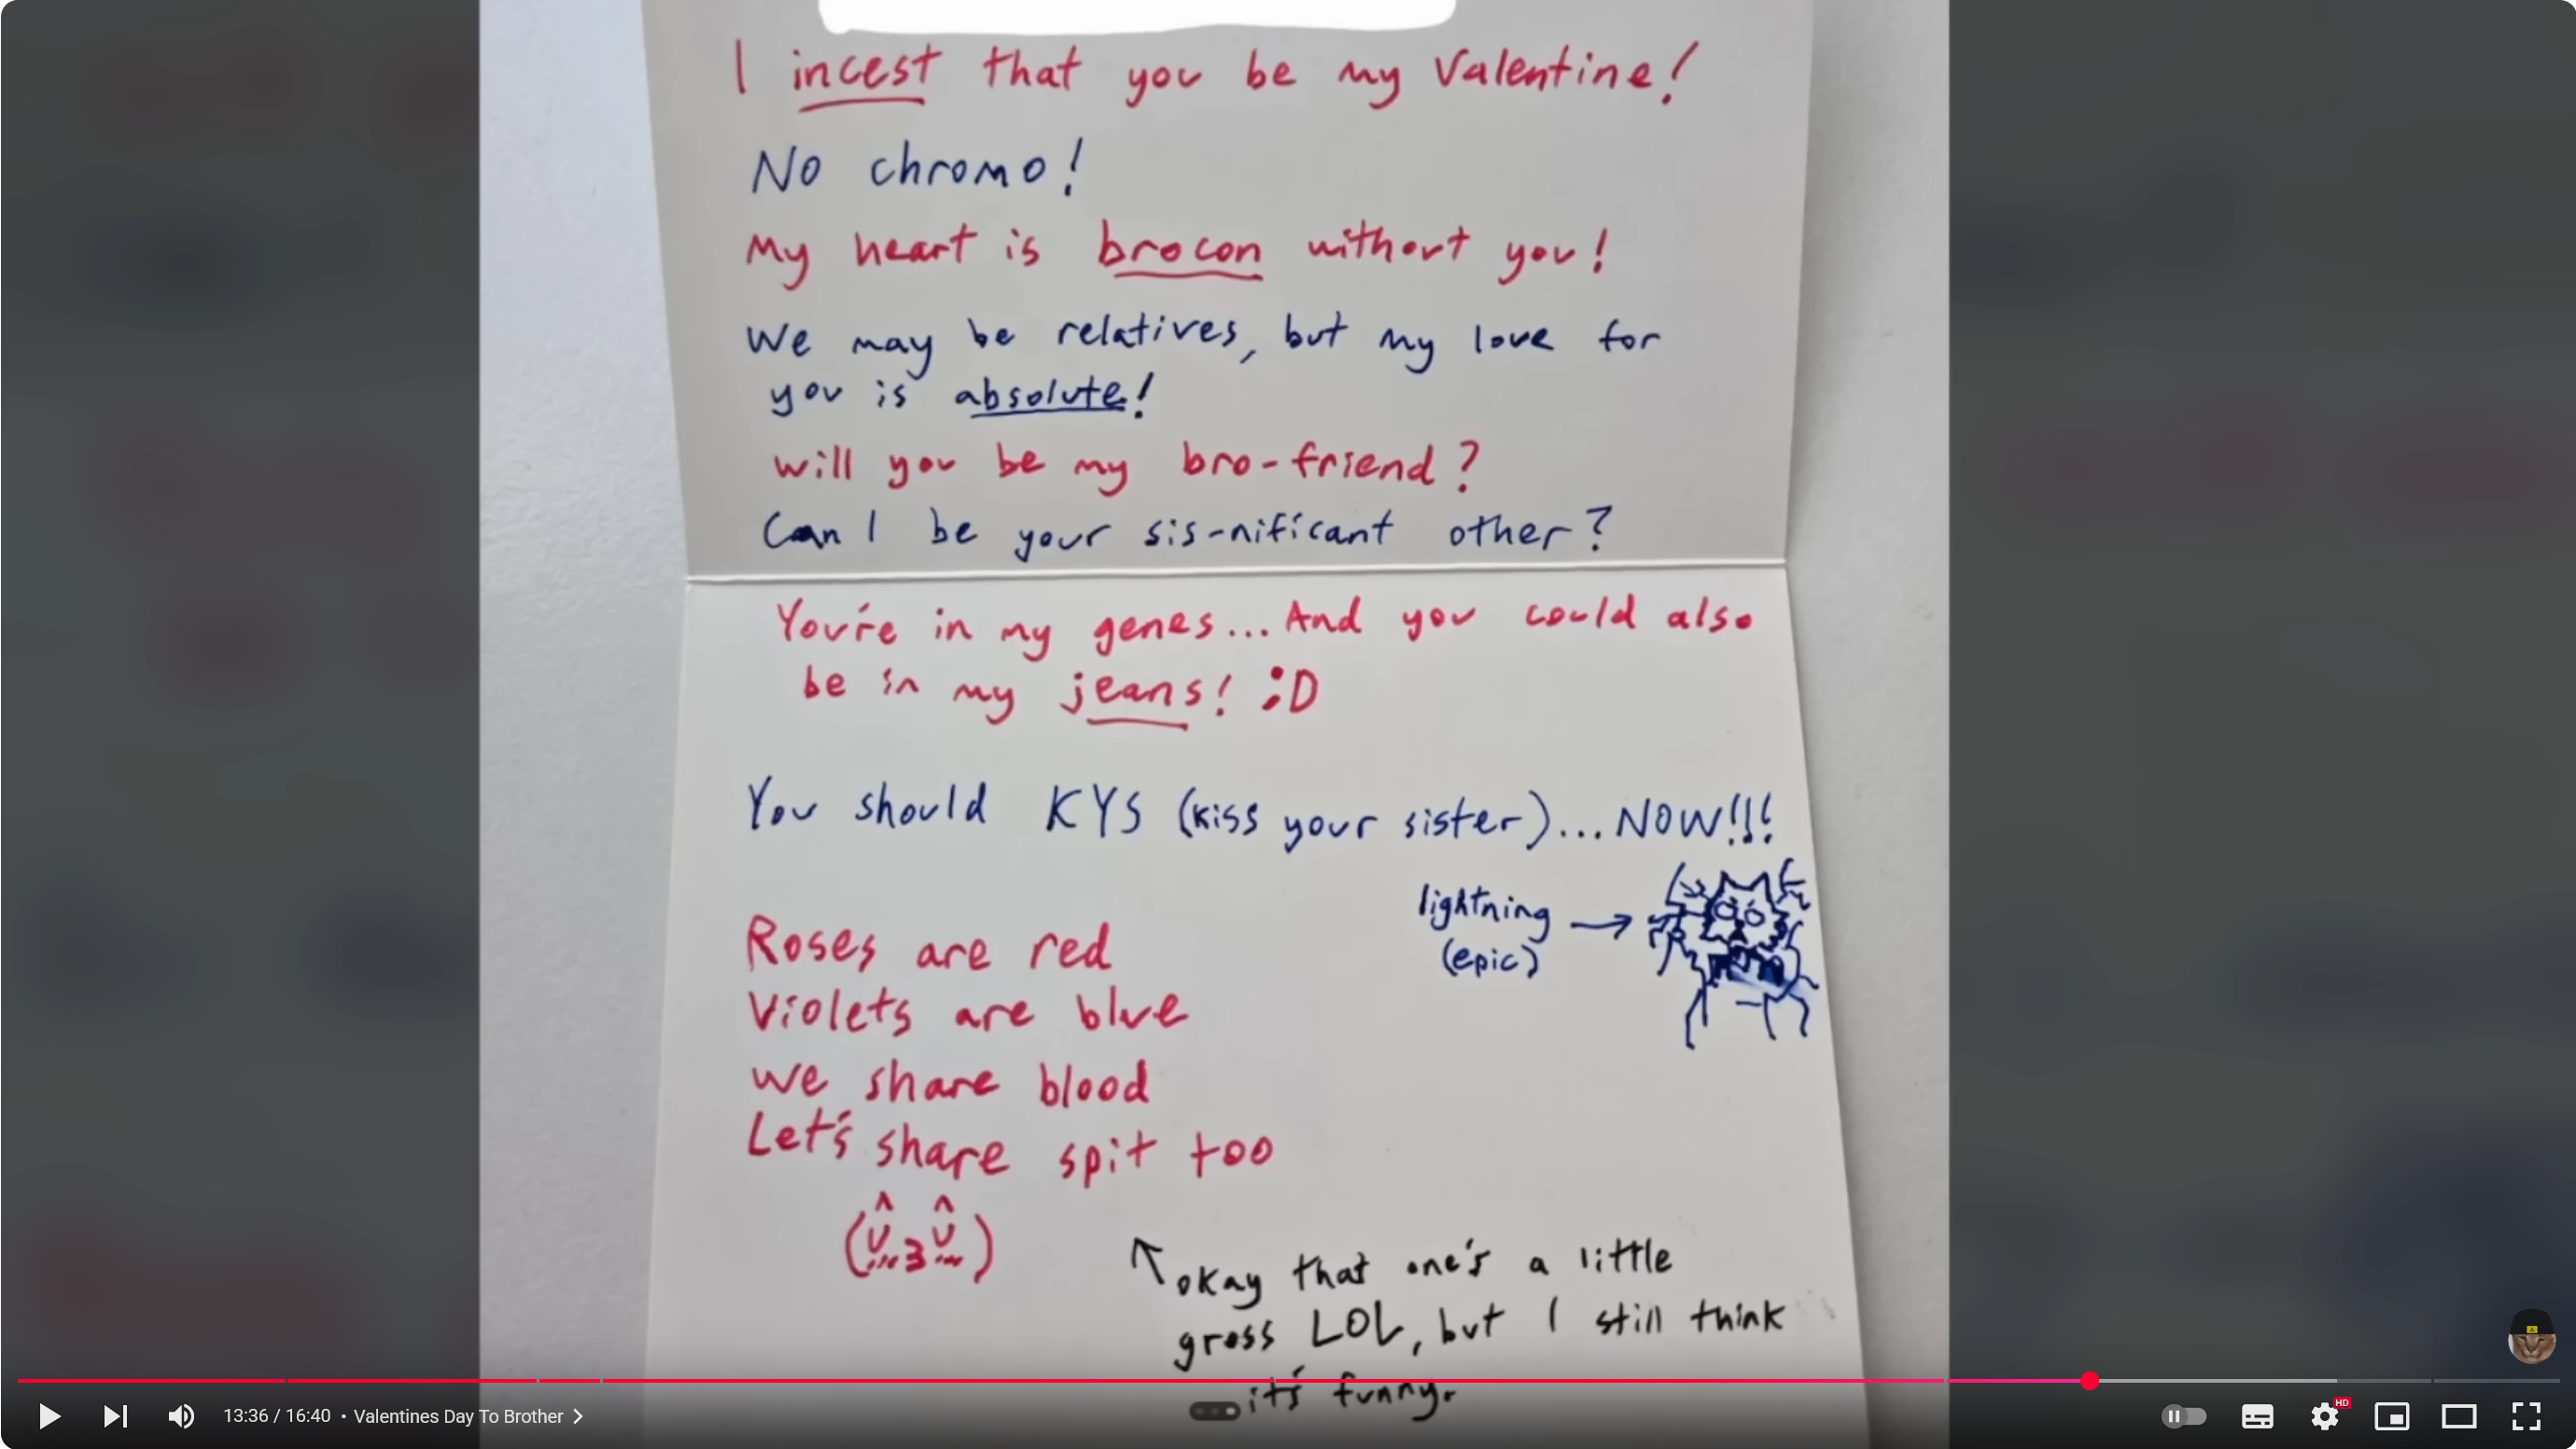 I incest that you be my Valentine!
No chromo!
My heart is brocon without you!
We may be relatives, but my love for
you is absolute!
Will you be my bro-friend?
Can I be your sis-nificant other?
You're in my genes... And you could also
be in my jeans! :D
You should KYS (kiss your sister)... NOW!!!
lightning
(epic)
Roses are red
Violets are blue
We share blood
Let's share spit too
okay that one's a little
gross LOL, but I still think
it's funny.
13:36 / 16:40 • Valentines Day To Brother
HD